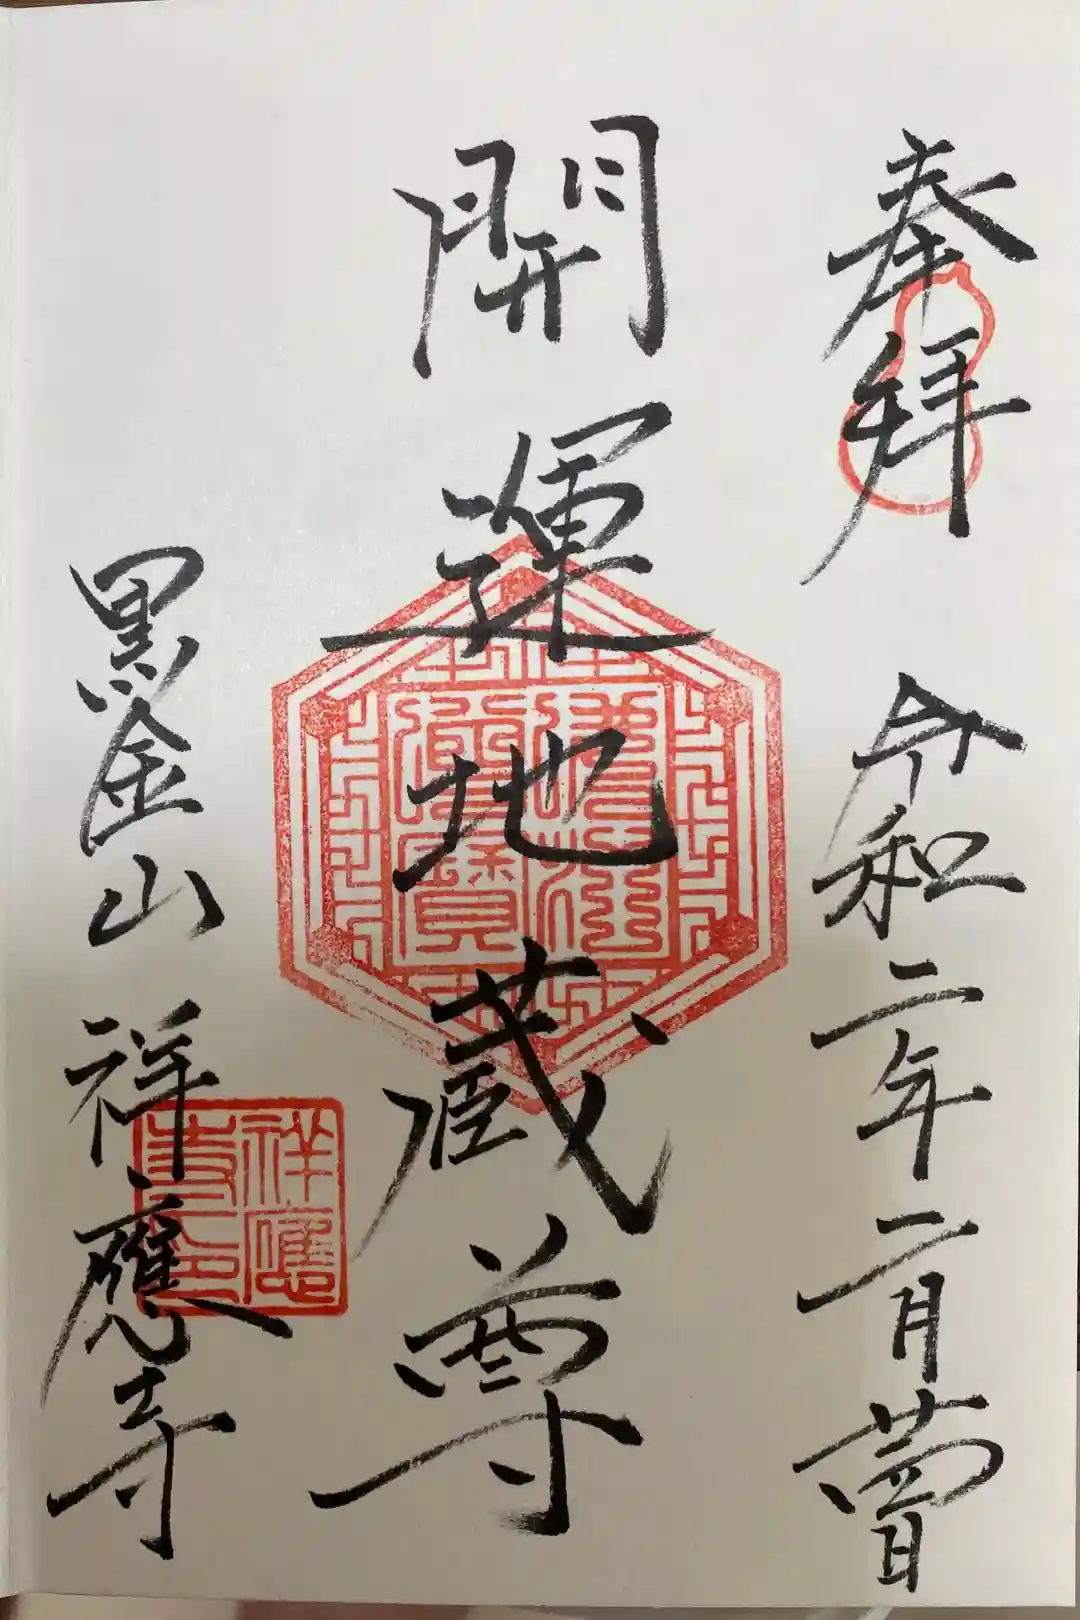 奉拝
令和二年二月廿四日
開運地蔵尊
黒金山 祥應寺
祥應
寺印